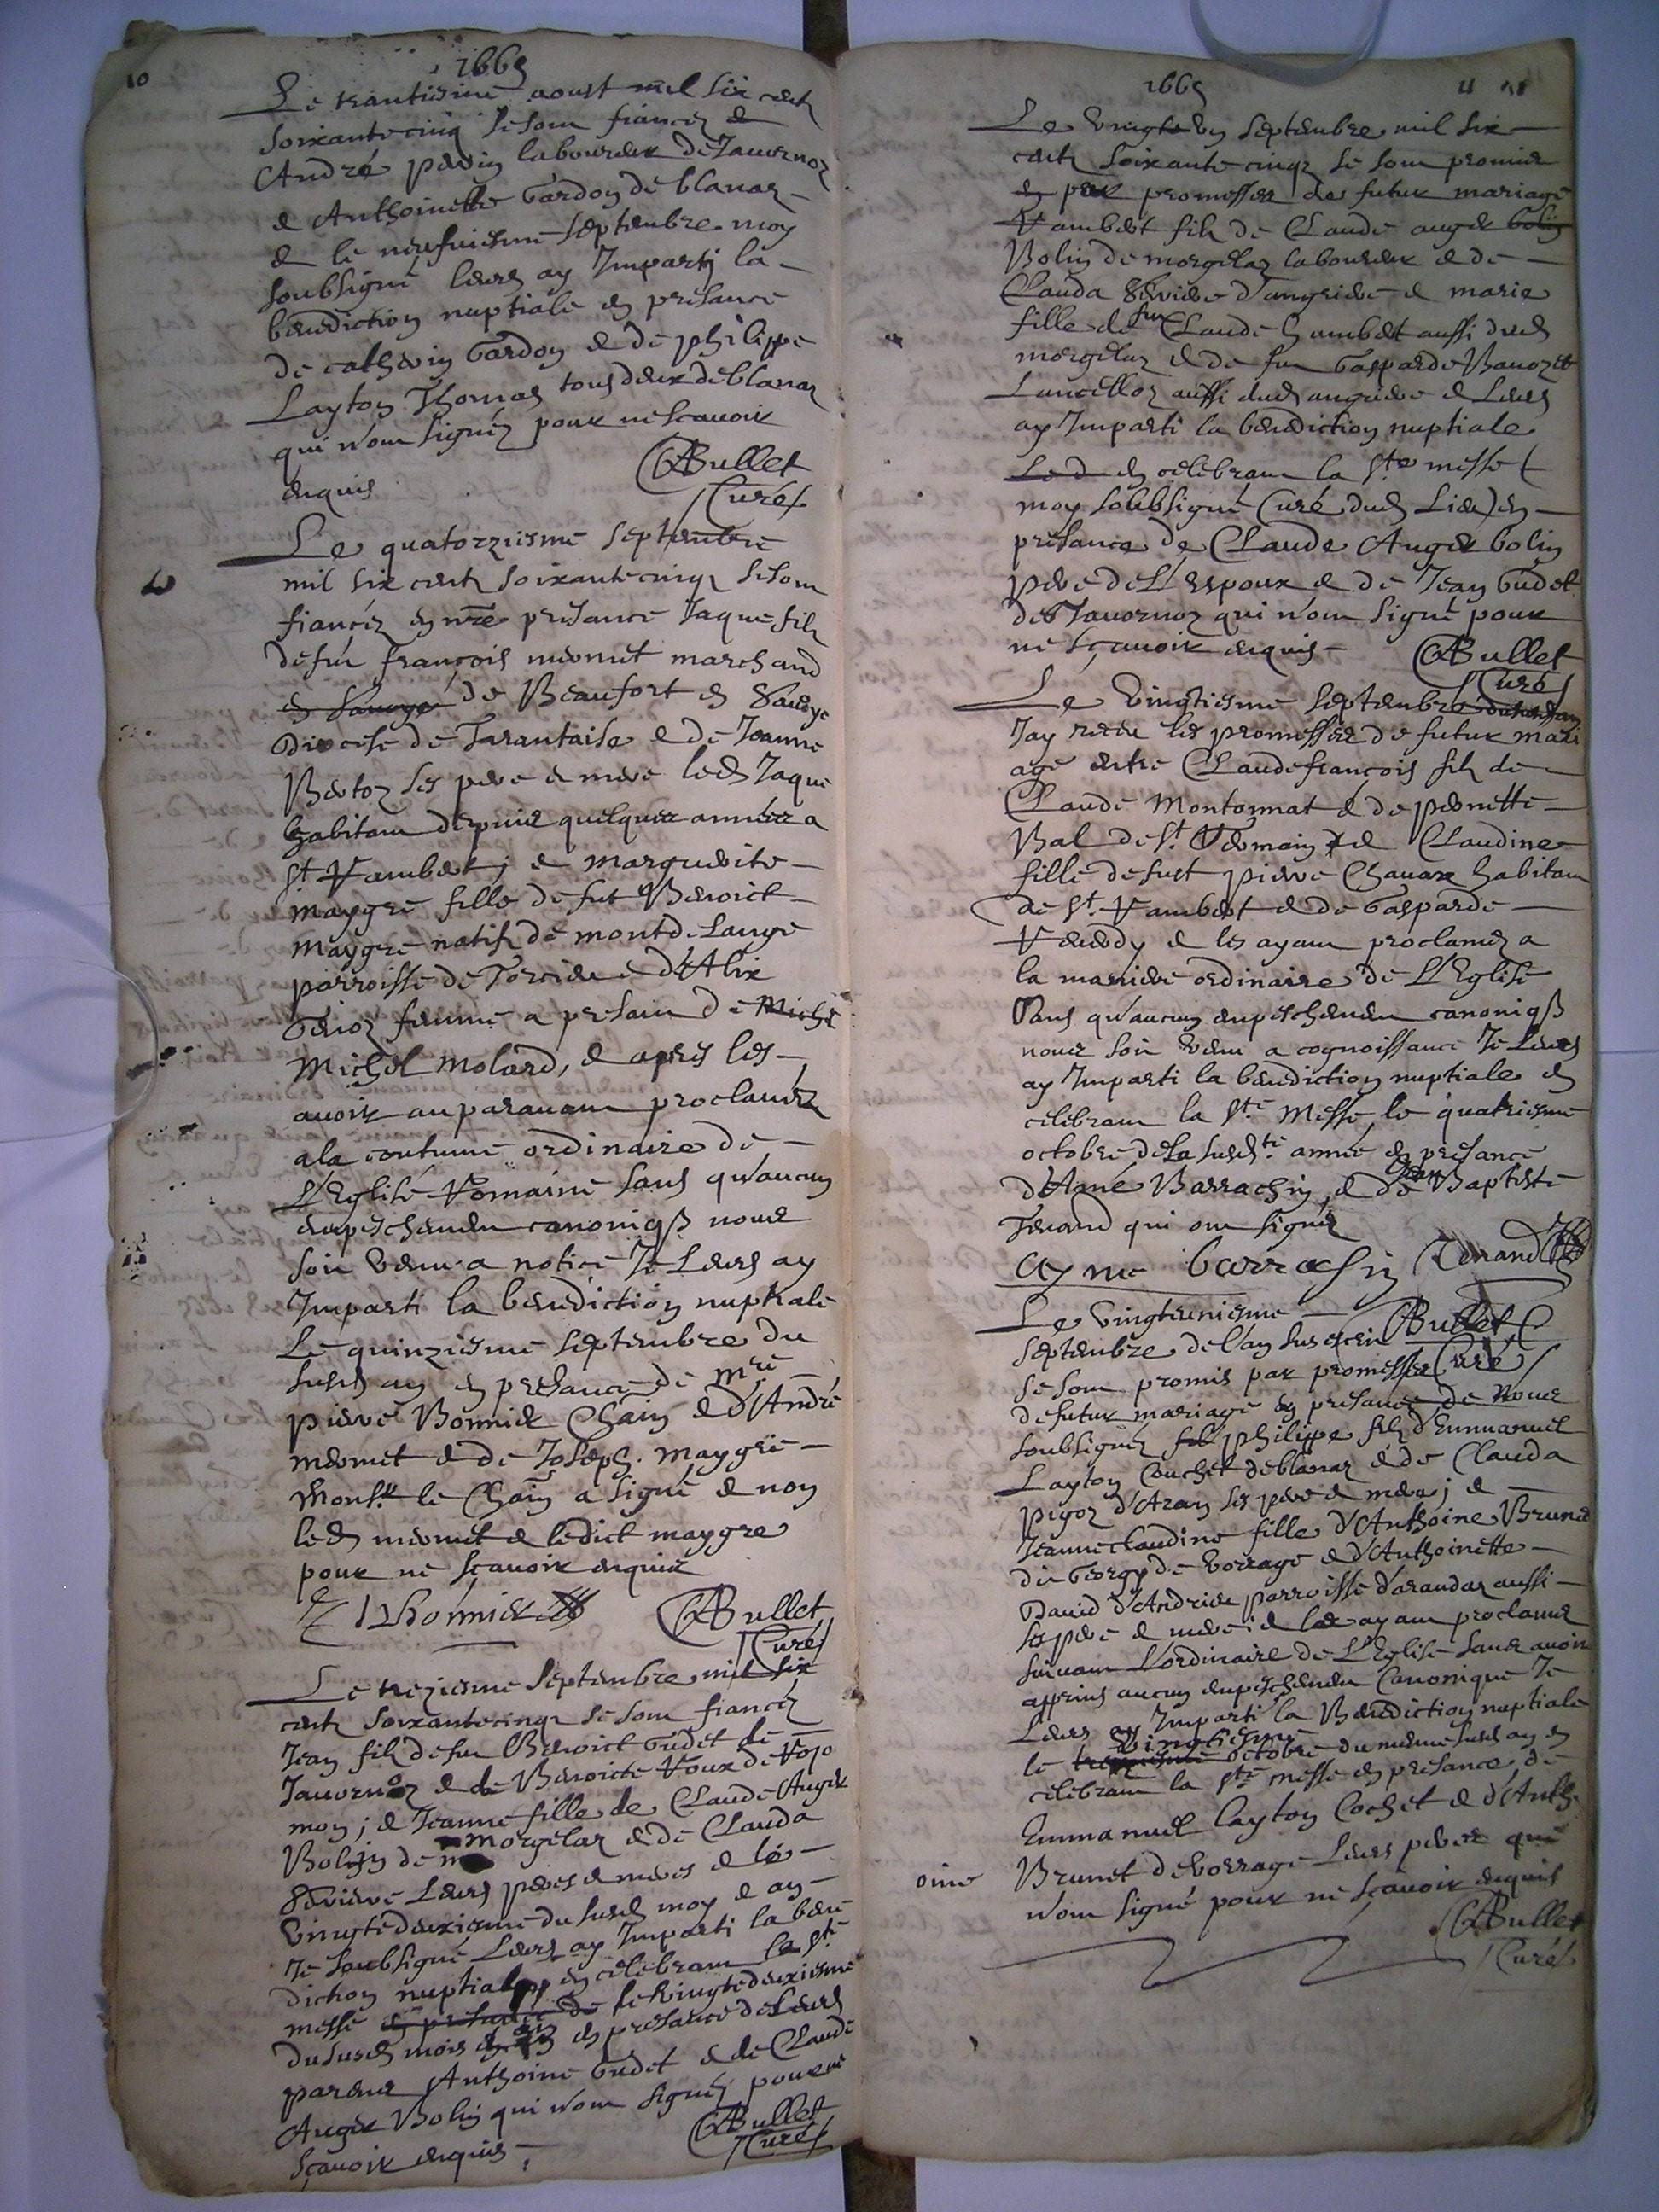 10
1665
Le trantiesme aoust mil six cent
soixante cinq se sont fiancez
André perrin laboureux de Tauernoz
e Anthoinette Gardon de blanaz
e le neufuiesme septembre moy
soubsigné leurs ay Imparty la
benediction nuptiale en presance
de catherin Gardon e de philippe
Layton Thomas tous deux de blanaz
qui n'ont signéz pour ne scauoir
enquis
Bullet
Curé
Le quatorziesme septembre
mil six cent soixante cinq se sont
fiancéz en nre presance Jaque filz
de fut françois mermet marchand
en sauoye de Beaufort en Sauoye
Diocese de Tarantaise e de Jeanne
Bertoz ses pere e mere led Jaque
habitant depuis quelques années a
St Rambert ; e marguerite
maygre fille de fut Benoict
maygre natifz de mont de Lange
parroisse de Torcieu e d'Alix
Genoz femme a presant de Miche
Michel molard, e apres les
auoir auparauant proclaméz
a la coutume ordinaire de
L'Eglise Romaine sans qu'aucun
empeschement canoniq nous
soit venu a notice Je Leurs ay
Imparti la benediction nuptiale
Le quinziesme septembre du
susd an en presance de mre
pierre Bonnier Chain e d'André
mermet e de Joseph maygre
Monsr le Chain a signé e non
led mermet e ledict maygre
pour ne sçauoir enquis
Bullet
Curé
Le trezиesme septembre mil six
cent soixante cinq se sont fiancéz
Jean filz de fut Benoict Gudet de
Tauernoz e de Benoicte Roux de Ro
mon ; e Jeanne fille de Claude Auger
Bolin de morgelaz e de Clauda
Seuiere Leurs peres e meres e le
vingtedeuxiesme du susd moy e an
Je soubsigné Leurs ay Imparti la bene
diction nuptiale en celebrant la ste
messe en presance de le vingtedeuxiesme
du susd mois e an en presance de Leurs
parens Anthoine Gudet e de Claude
Auger Bolin qui n'ont signéz pour ne
sçauoir enquis
Bullet
Curé
1665
11
Le vingt vn septembre mil six
cent soixante cinqz se sont promis
en par promesses des futur mariage
Rambert filz de Claude auger bolin
Bolin de morgelaz laboureux e de
Clauda Seuiere d'angrieres e marie
fille de fut Claude hambert aussi dud
morgelaz e de fut Gasparde Bauozet
Lancelloz aussi dud angrieres e Leurs
ay Imparti la benediction nuptiale
Led en celebrant la ste messe
moy soubsigné Curé dud Lieu en
presance de Claude Auger bolin
pere de L'espoux e de Jean Gudet
de Tauernoz qui n'ont signé pour
ne sçauoir enquis
Bullet
Curé
Le vingtiesme septembre du susd an
J'ay receu les promesses de futur mari
age entre Claude françois filz de
Claude Montonnat e de pernette
Bal de St Germain e Claudine
fille de fust pierre Chauax habitant
de St Rambert e de Gasparde
e les ayant proclaméz a
la maniere ordinaire de L'Eglise
Sans qu'aucun empeschement canoniq
nous soit venu a cognoissance Je Leurs
ay Imparti la benediction nuptiale en
celebrant la ste Messe le quatriesme
octobre de la susdte année en presance
d'Aymé Barrachin e de Jean Baptiste
Tenand qui ont signéz
ayme barrachin Tenand
Le vingtvniesme
Septembre de l'an sus escrit Bullet
se sont promis par promesses Curé
de futur mariage en presance de Nous
soubsignéz fil philippe filz d'Emmanuel
Layton Couchet de blanaz e de Clauda
pigoz d'Aran ses pere e mere ; e
Jeanne claudine fille d'Anthoine Brunet
du Georgy de Vorrage e d'Anthoinette
Dauid d'Andrieu parroisse d'arandaz aussi
ses pere e mere e les ayant proclaméz
suiuant L'ordinaire de L'Eglise sans auoir
apprins aucun empeschement Canonique Je
Leurs ay Imparti la Benediction nuptiale
le vingtiesme octobre du mesme susd an en
celebrant la ste messe en presance de
Emmanuel Layton Cochet e d'Anth
oine Brunet de vorrage Leurs peres qui
n'ont signé pour ne sçauoir enquis
Bullet
Curé